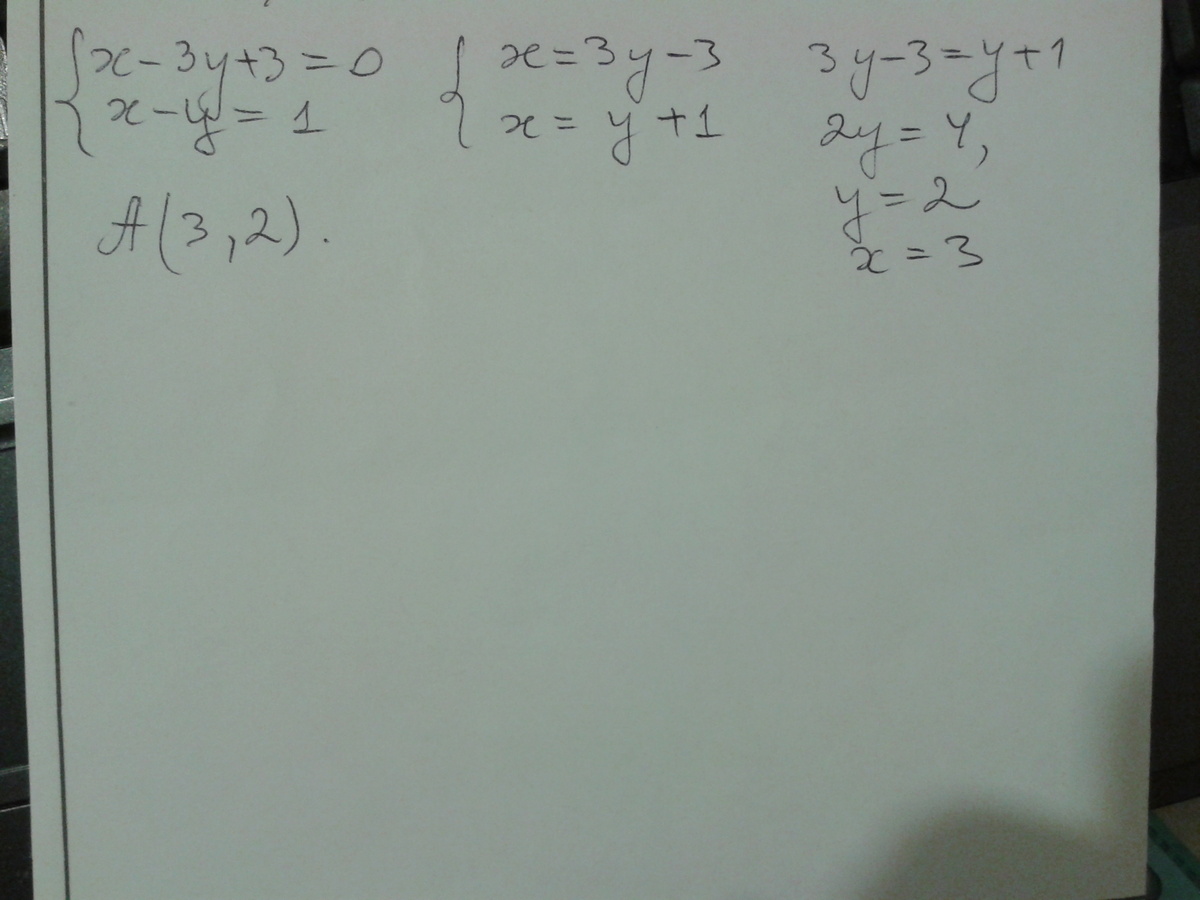 x - 3y + 3 = 0
x - y = 1
x = 3y - 3
x = y + 1
3y - 3 = y + 1
2y = 4,
y = 2
x = 3
A(3, 2).